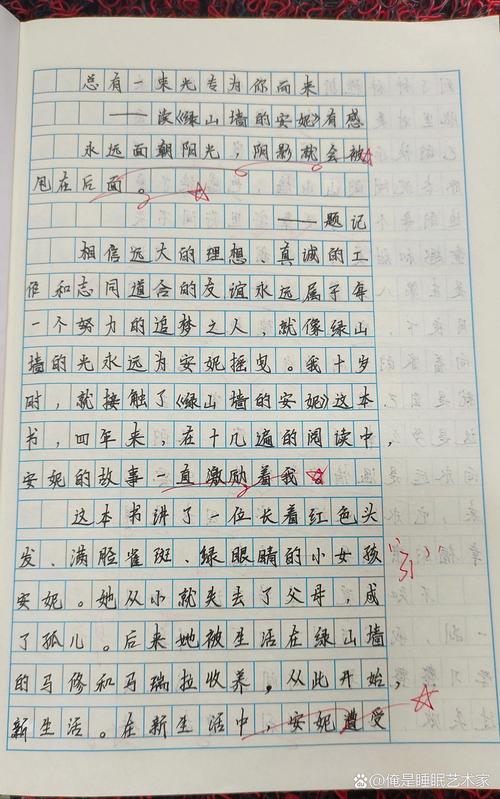 总有一束光专为你而来
——读《绿山墙的安妮》有感
永远面朝阳光，阴影就会被
甩在后面。
——题记
相信远大的理想、真诚的工
作和志同道合的友谊永远属于每
一个努力的追梦之人，就像绿山
墙的光永远为安妮摇曳。我十岁
时，就接触了《绿山墙的安妮》这本
书，四年来，在十几遍的阅读中，
安妮的故事一直激励着我。
这本书讲了一位长着红色头
发、满脸雀斑、绿眼睛的小女孩
安妮。她从小就失去了父母，成
了孤儿。后来她被生活在绿山墙
的马修和马瑞拉收养，从此开始，
新生活。在新生活中，安妮遭受
百度 @俺是睡眠艺术家